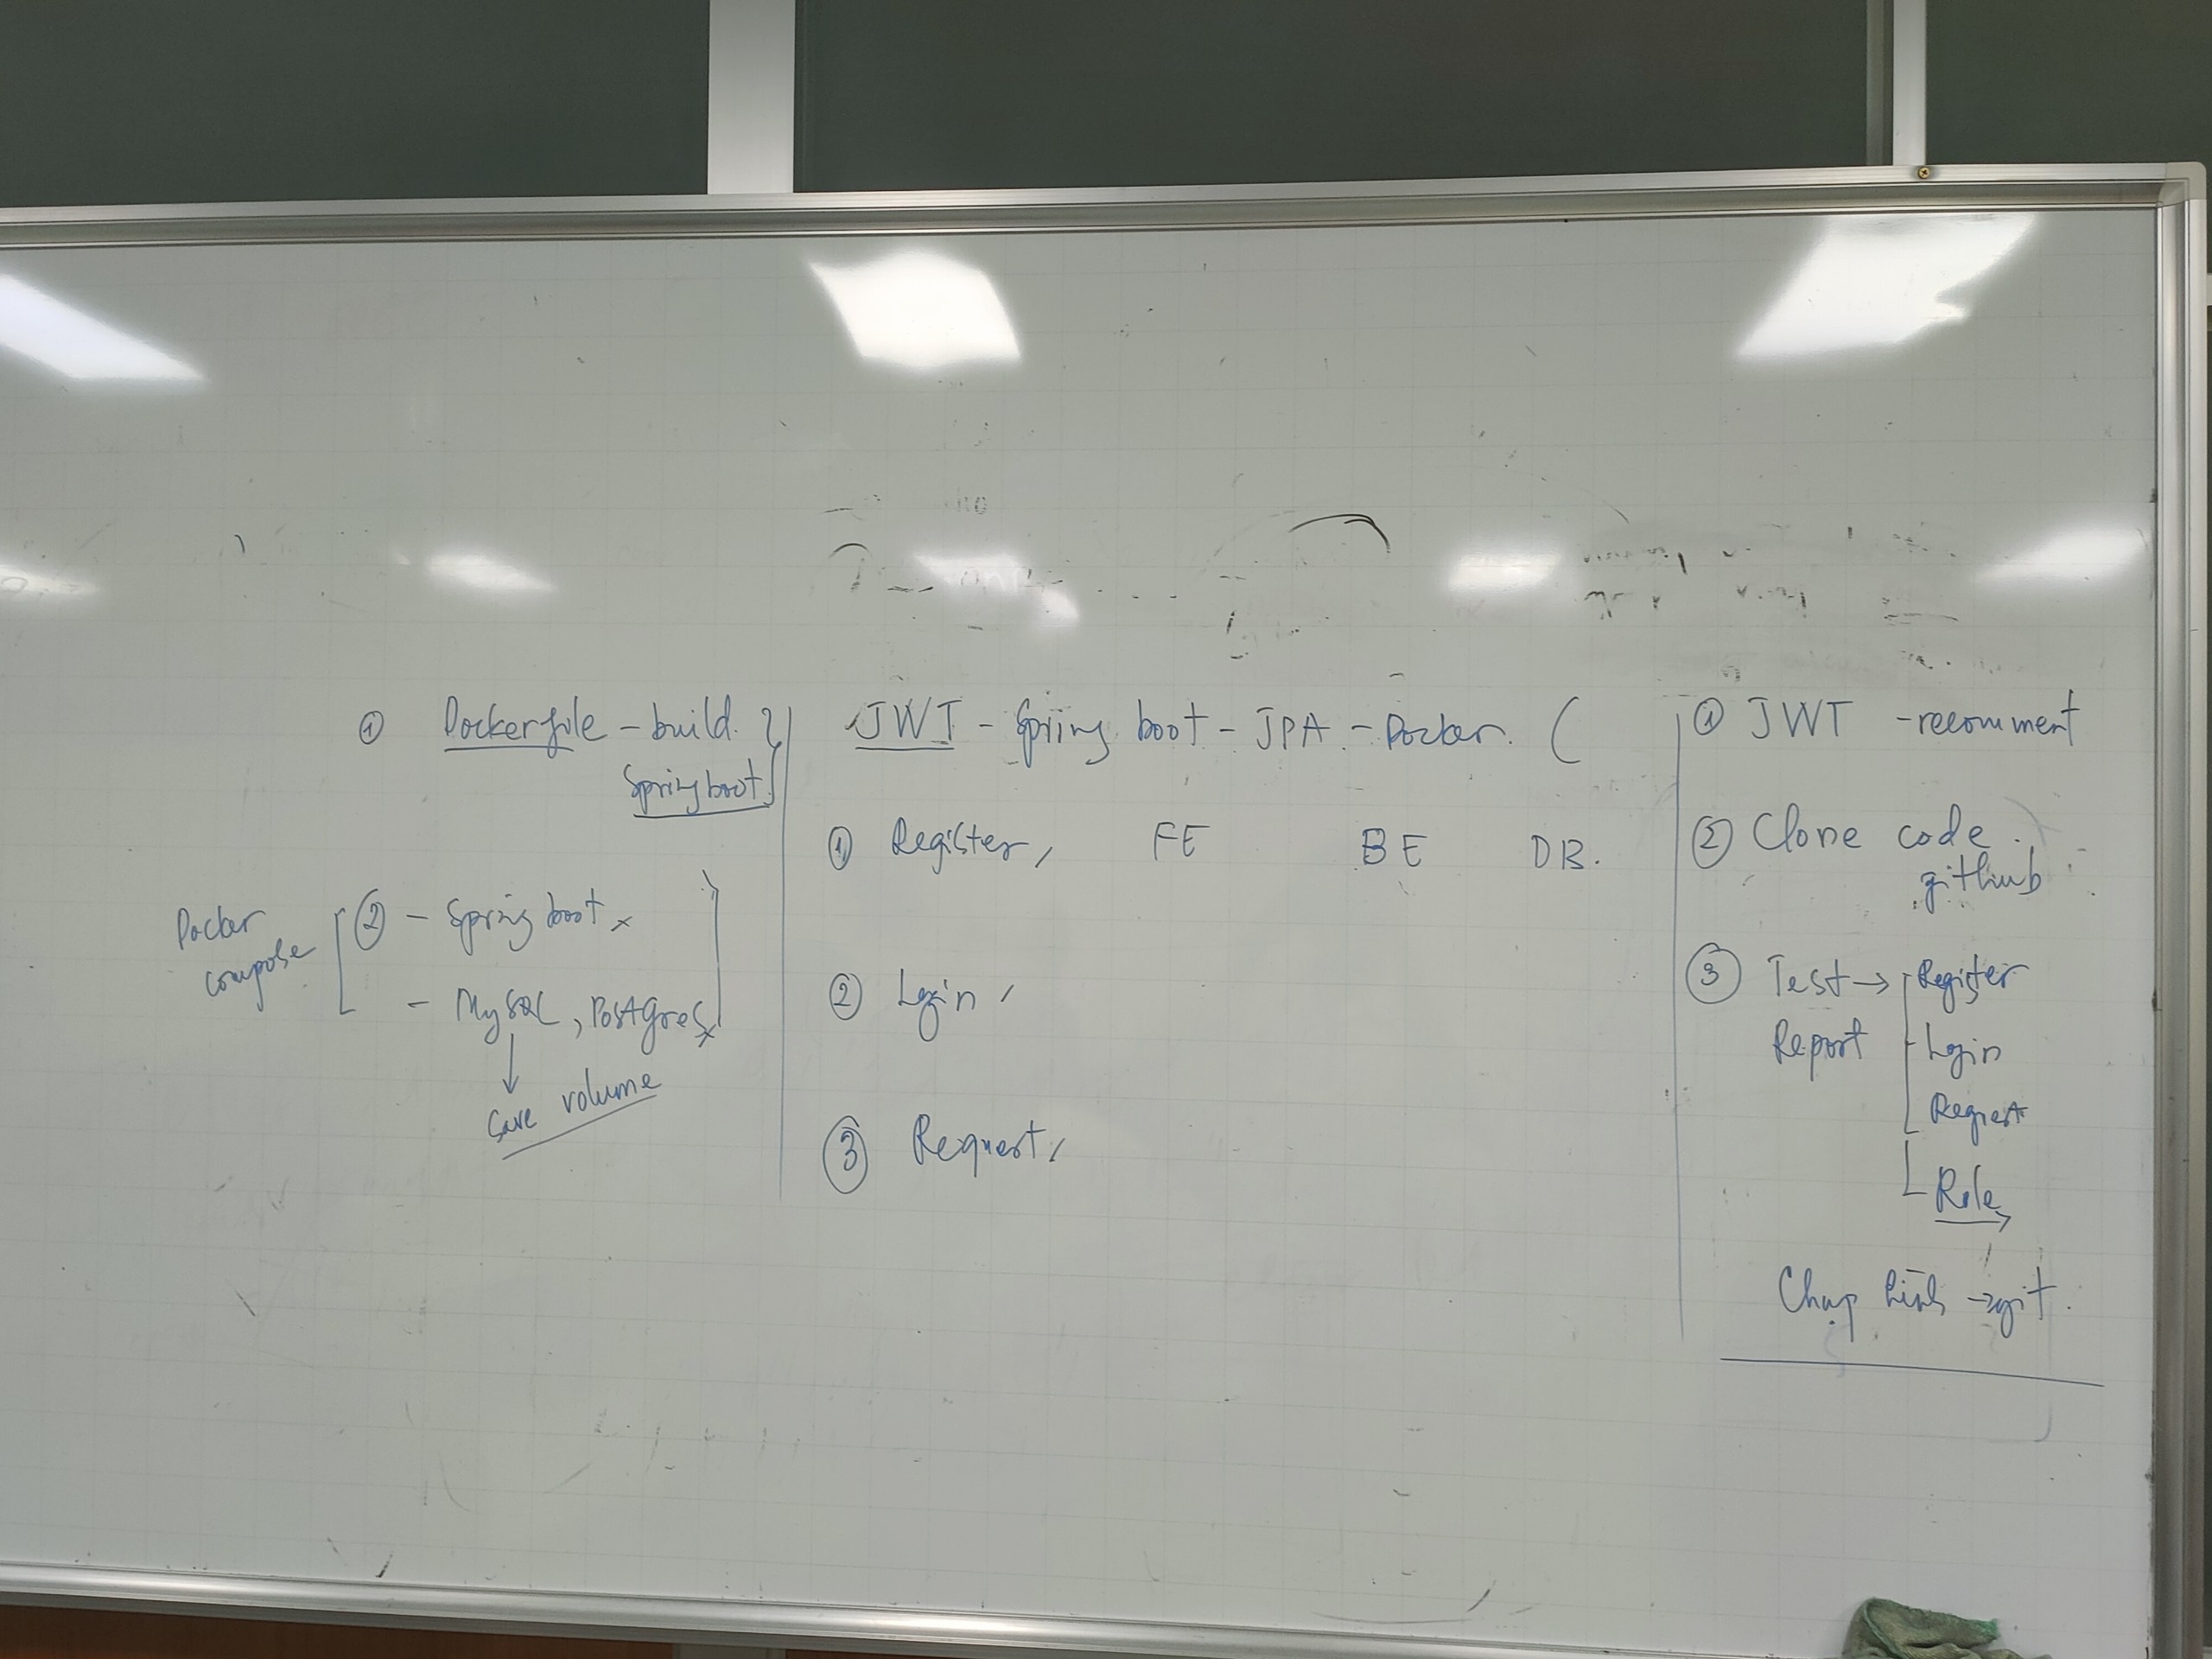 ① Dockerfile - build
Spring boot
Docker compose
② - Spring boot
- MySQL, PostGres
↓
Save volume
JWT - Spring boot - JPA - Docker. (
① Register, FE BE DB.
② Login,
③ Request,
① JWT - recomment
② Clone code.
github
③ Test → Register
Report Login
Request
Role
Chụp hình → git.